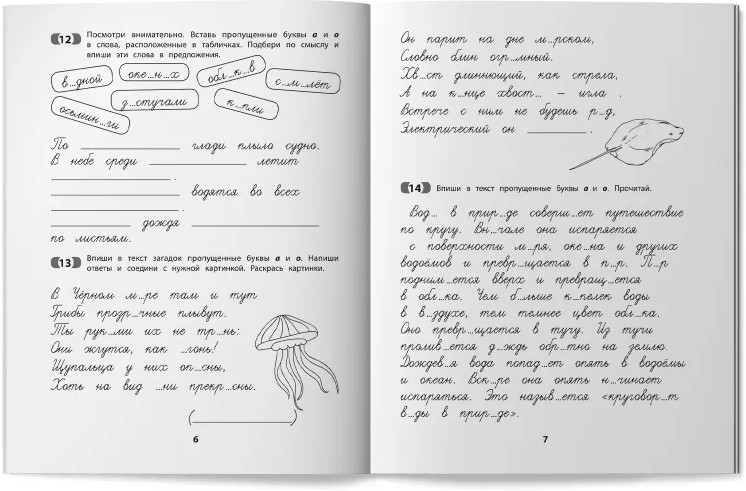 12 Посмотри внимательно. Вставь пропущенные буквы а и о
в слова, расположенные в табличках. Подбери по смыслу и
впиши эти слова в предложения.
в...дной
оке...н...х
обл...к...в
с...м...лёт
осьмин...ги
з...стучали
к...пли
По ____________ глади плыло судно.
В небе среди ____________ летит
____________.
____________ водятся во всех
____________.
____________ дождя ____________
по листьям.
13 Впиши в текст загадок пропущенные буквы а и о. Напиши
ответы и соедини с нужной картинкой. Раскрась картинки.
В Чёрном м...ре там и тут
Грибы прозр...чные плывут.
Ты рук...ми их не тр...нь:
Они жгутся, как ...гонь!
Щупальца у них оп...сны,
Хоть на вид ...ни прекр...сны.
(____________)
6
Он парит на дне м...рском,
Словно блин огр...мный.
Хв...ст длиннющий, как стрела,
А на к...нце хвост... – игла .
Встрече с ним не будешь р...д,
Электрический он ________ .
14 Впиши в текст пропущенные буквы а и о. Прочитай.
Вод... в прир...де соверш...ет путешествие
по кругу. Вн...чале она испаряется
с поверхности м...ря, оке...на и других
водоёмов и превр...щается в п...р. П...р
поднима...тся вверх и превращ...ется
в обл...ка. Чем б...льше к...пелек воды
в в...здухе, тем темнее цвет обл...ка.
Оно превр...щается в тучу. Из тучи
пролив...ется д...ждь обр...тно на землю.
Дождев...я вода попад...ет опять в водоёмы
и океан. Вск...ре она опять н...чинает
испаряться. Это назыв...ется «круговор...т
в...ды в прир...де».
7